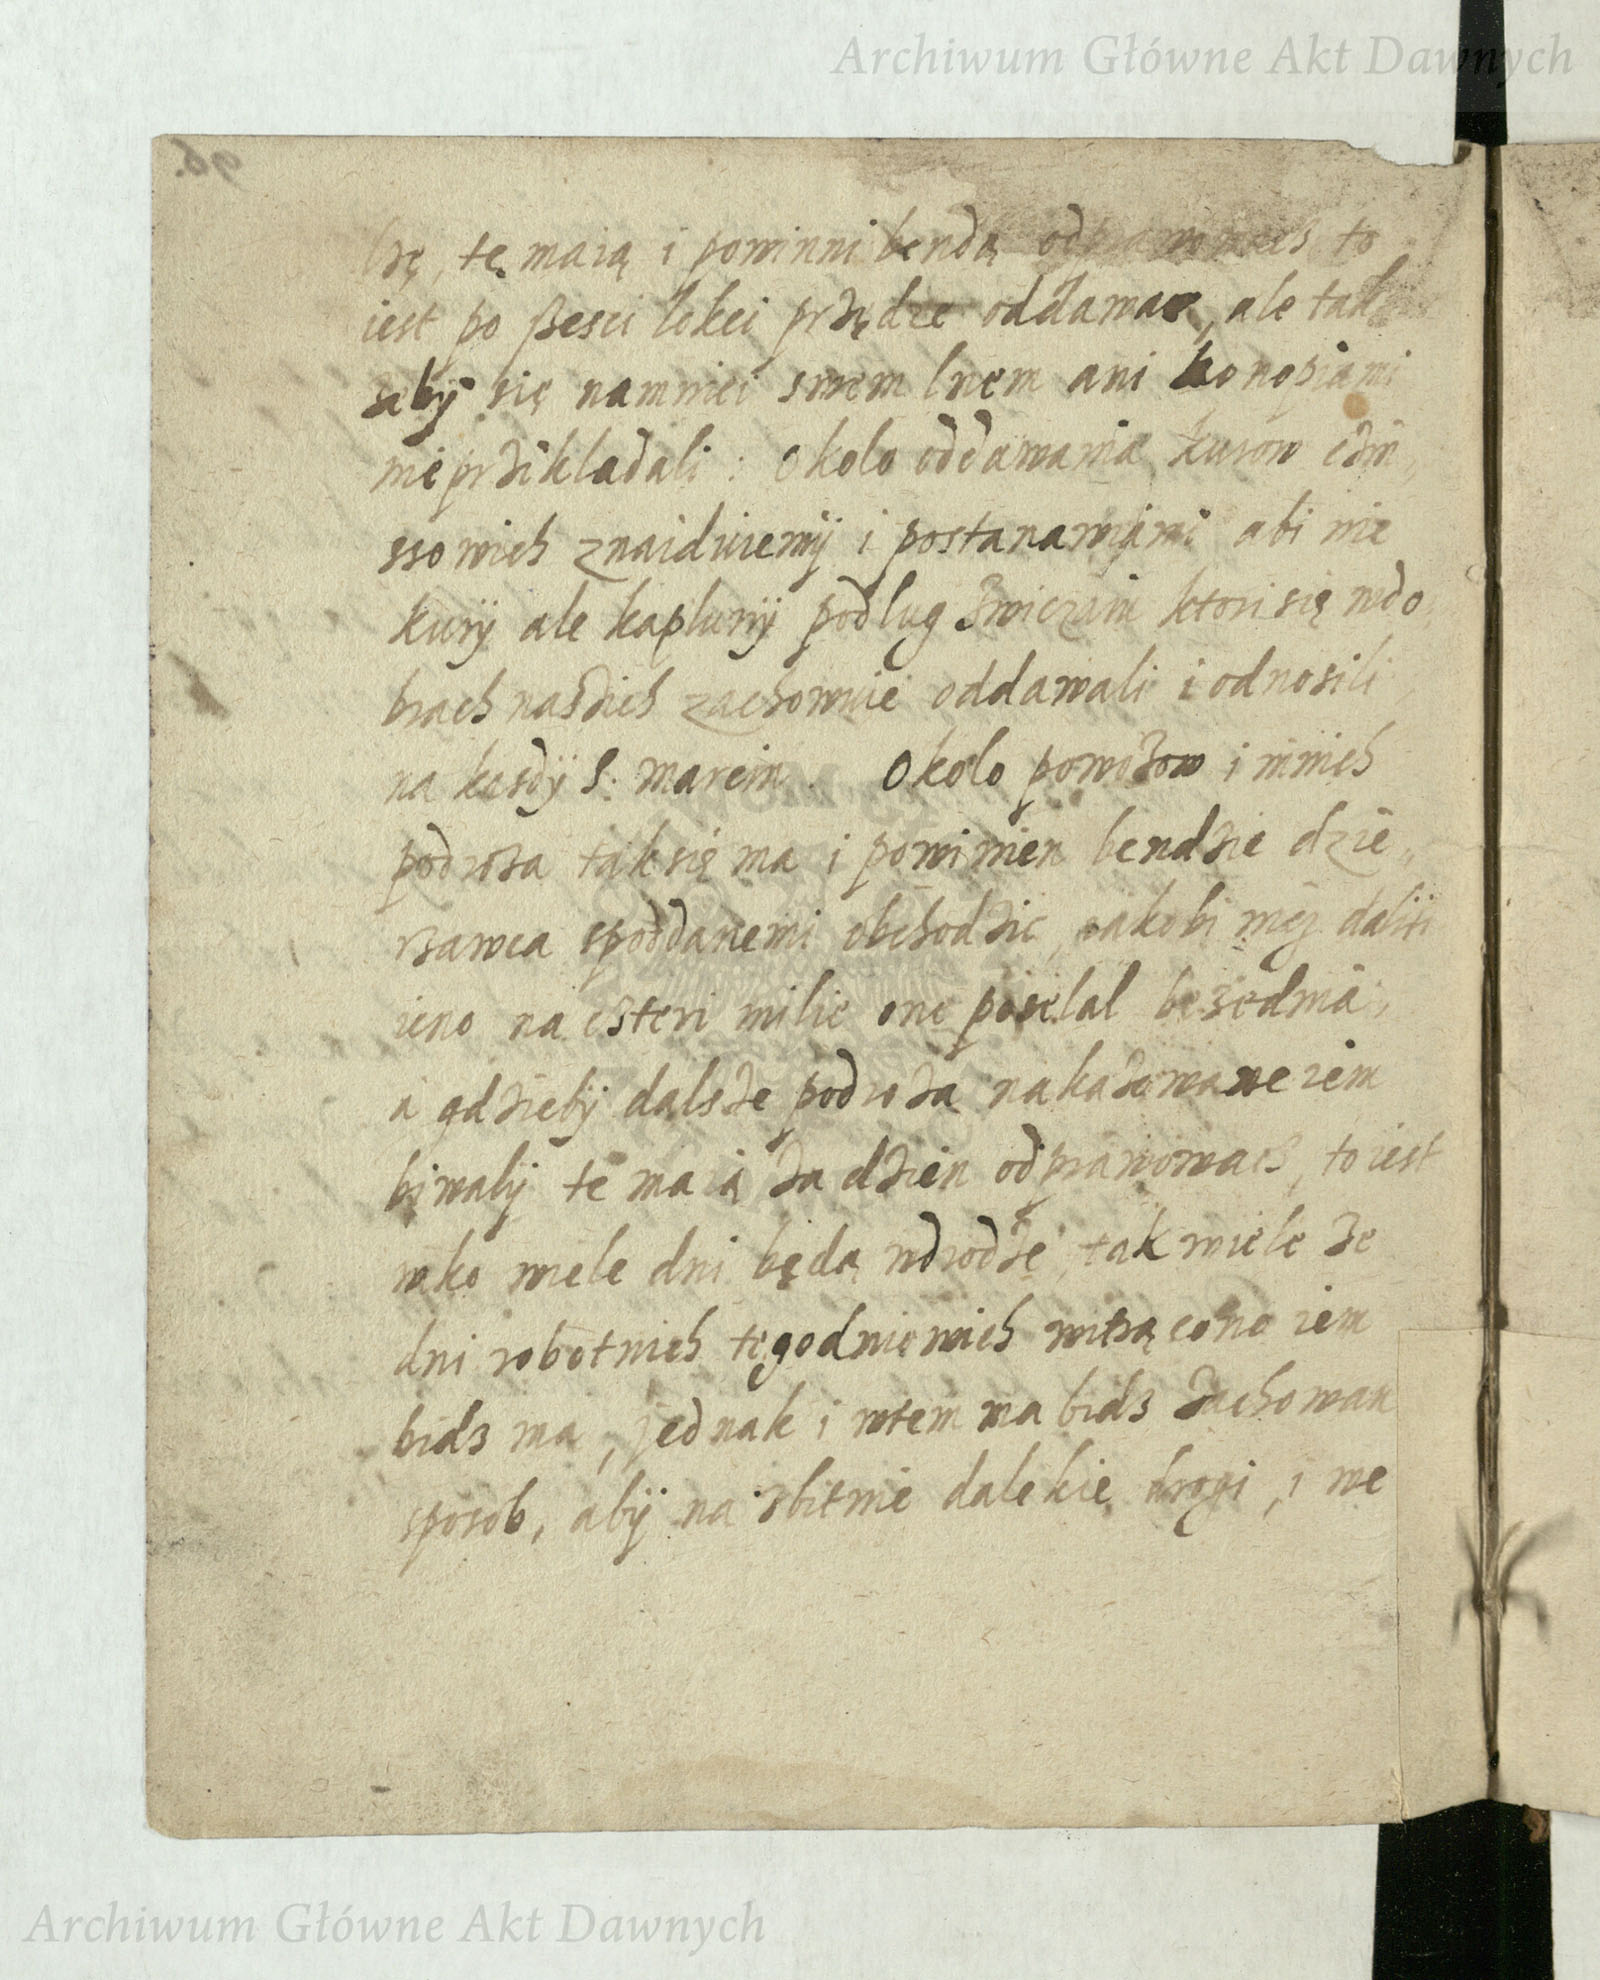 Archiwum Główne Akt Dawnych
96.
tę maią i powinni bendą odprawowacs to
iest po szesci lokci prządze oddawac, ale tak
zeby się namniei swem lnem ani konopiami
nieprzikladali : Okolo oddawania kurow czin„
ssowich znaiduiemy i postanawiami abi nie
kury ale kapluny podlug zwiczaiu ktori się wdo„
brach naszich zachowuie oddawali i odnosili
na kasdy S. marcin . Okolo powozow i innich
podroza tak się ma i powinien bendzie dzie„
rzawca spoddanemi obchodzic, iakobi niej dalii
ieno na czteri milie one poselal bezedmia,
a gdzieby dalsze podroza nakazowane iem
biwaly te maią za dzien odprawowacs, to iest
iako wiele dni będą wdrodze, tak wiele ze
dni robotnich tegodniowich witrącono iem
bids ma, jednak i wtem ma bids zachowan
sposob, aby na zbitnie dalekie drogi, i we
Archiwum Główne Akt Dawnych